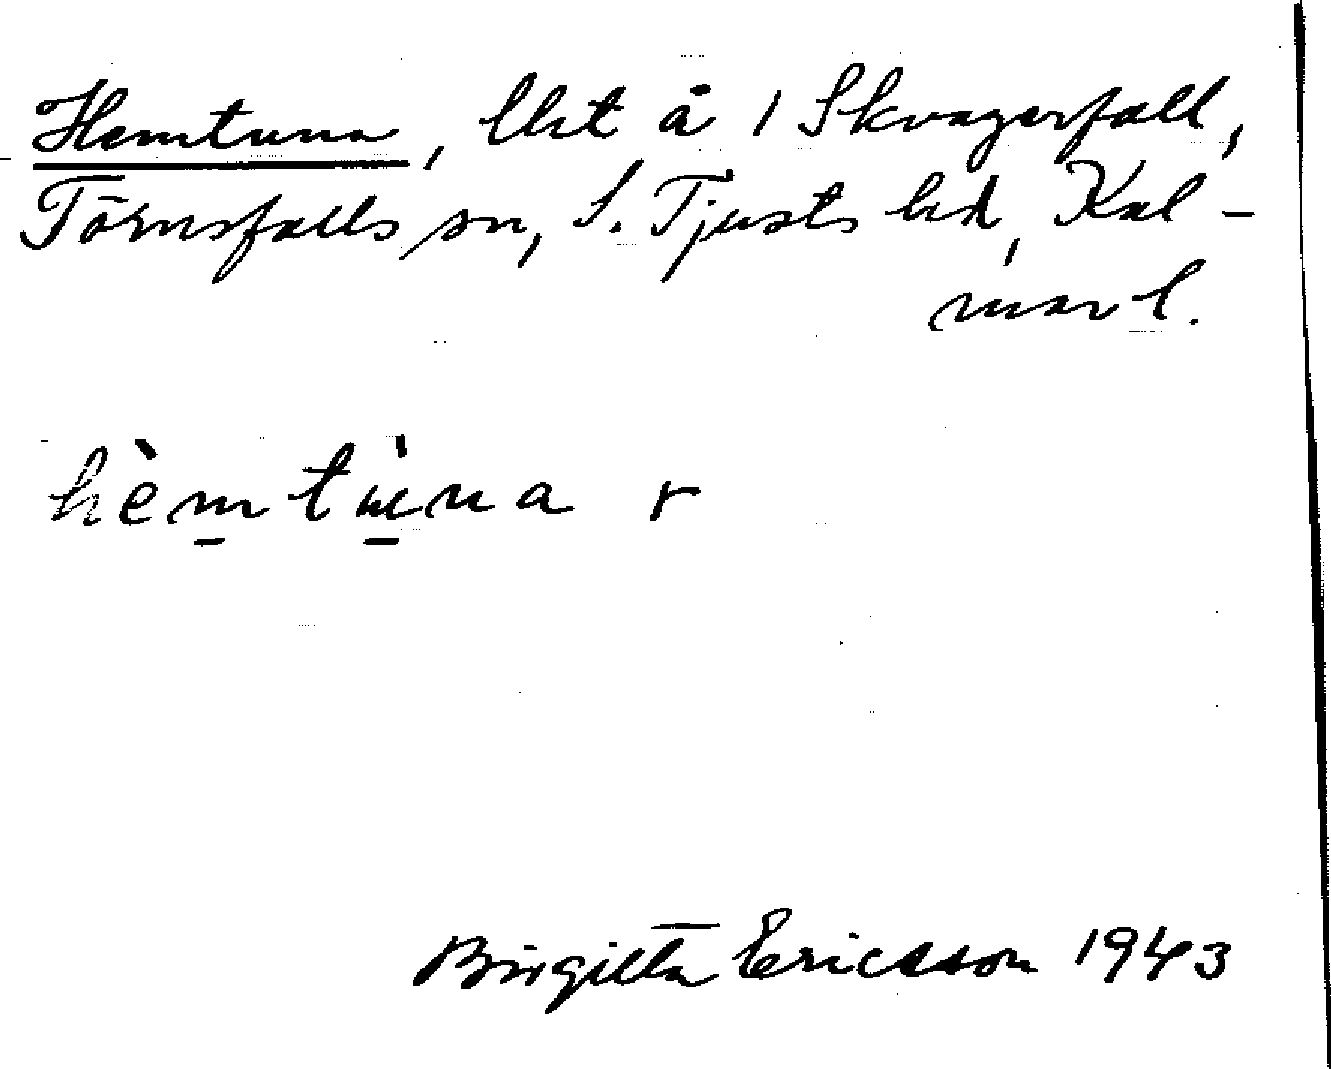 Hemtuna, lht å 1 Skvagerfall,
Törnsfalls sn, S. Tjusts hd, Kal-
mar l.
hèmtùna r
Birgitta Ericsson 1943